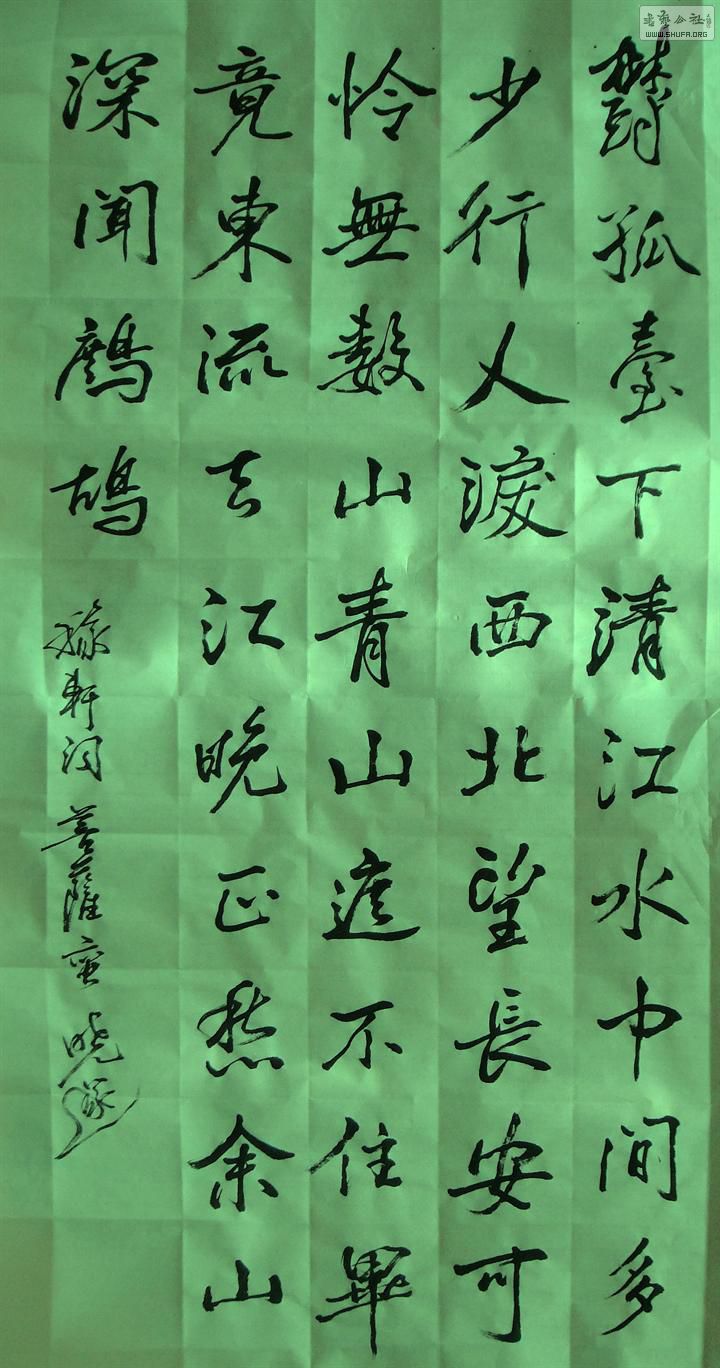 鬱孤臺下清江水中間多
少行人淚西北望長安可
怜無数山青山遮不住畢
竟東流去江晚正愁余山
深聞鷓鴣
稼軒词菩薩蛮 晓
公社
WWW.SHUFA.ORG